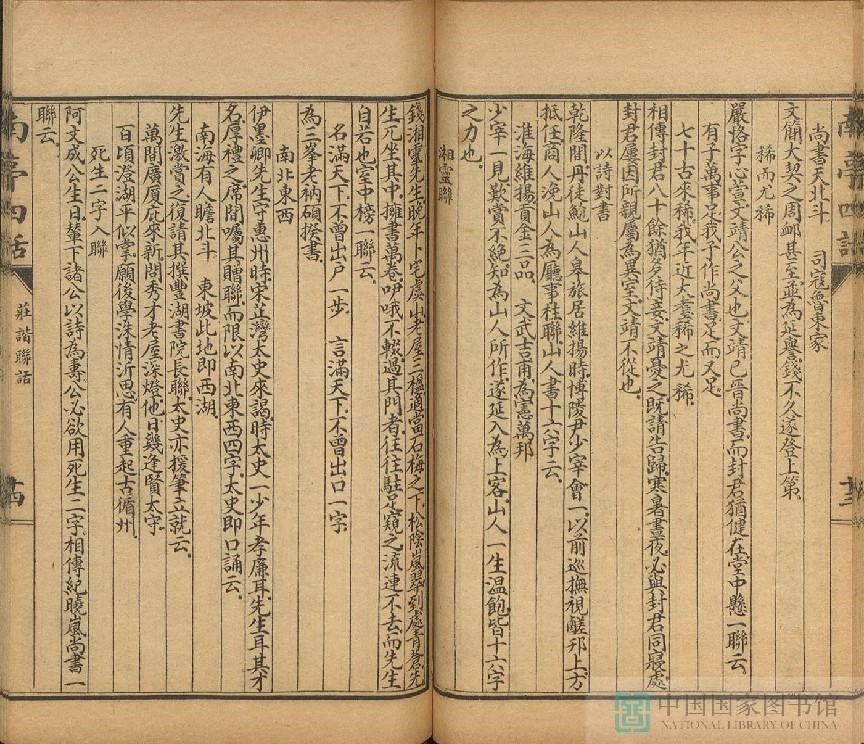 尚書天北斗　司寇魯東家
文簡大契之周郵甚至並為延譽錢不久遂登上第
稀而尤稀
嚴恪字心萱文靖公之父也文靖已晉尚書而封君猶健在堂中懸一聯云
有子萬事足我子作尚書足而又足
七十古來稀我年近大耋稀之尤稀
相傳封君八十餘猶多侍妾文靖憂之既請告歸寒暑晝夜必與封君同寢處
封君屢因所親屬為異室文靖不從也
以詩對書
乾隆間丹徒鮑山人皋旅居維揚時博陵尹少宰會一以前巡撫視鹾邗上方
抵任商人浼山人為廳事柱聯山人書十六字云
淮海維揚貢金三品　文武吉甫為憲萬邦
少宰一見歎賞不絕知為山人所作遂延入為上客山人一生溫飽皆十六字
之力也
湘靈聯
南亭四話
錢湘靈先生晚年卜宅虞山老屋三楹適當石梅之下松陰嵐翠到處青蒼先
生兀坐其中擁書萬卷咿哦不輟過其門者往往駐足窺之流連不去而先生
自若也室中榜一聯云
名滿天下不曾出戶一步　言滿天下不曾出口一字
為三峯老衲碩揆書
南北東西
伊墨卿先生守惠州時宋芷灣太史來謁時太史一少年孝廉耳先生耳其才
名厚禮之席間囑其贈聯而限以南北東西四字太史即口誦云
南海有人瞻北斗　東坡此地即西湖
先生激賞之復請其撰豐湖書院長聯太史亦援筆立就云
萬間廣厦庇來新問秀才老屋深燈他日幾逢賢太守
百頃澄湖平似掌願後學洗情沂思有人重起古循州
死生二字入聯
阿文成公生日輦下諸公以詩為壽公必欲用死生二字相傳紀曉嵐尚書一
聯云
南亭四話
莊諧聯話
十四
中国国家图书馆
NATIONAL LIBRARY OF CHINA